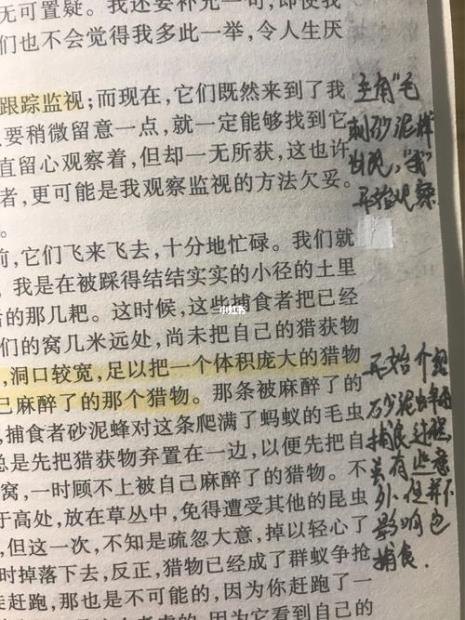 无可置疑。我还要补充一句,即使我
们也不会觉得我多此一举,令人生厌
跟踪监视;而现在,它们既然来到了我
要稍微留意一点,就一定能够找到它
直留心观察着,但却一无所获,这也许
者,更可能是我观察监视的方法欠妥。
。
前,它们飞来飞去,十分地忙碌。我们就
。我是在被踩得结结实实的小径的土里
的那几耙。这时候,这些捕食者把已经
们的窝几米远处,尚未把自己的猎获物
,洞口较宽,足以把一个体积庞大的猎物
己麻醉了的那个猎物。那条被麻醉了的
,捕食者砂泥蜂对这条爬满了蚂蚁的毛虫
总是先把猎获物弃置在一边,以便先把自
窝,一时顾不上被自己麻醉了的猎物。不
于高处,放在草丛中,免得遭受其他的昆虫
,但这一次,不知是疏忽大意,掉以轻心了
时掉落下去,反正,猎物已经成了群蚁争抢
赶跑,那也是不可能的,因为你赶跑了一
因为它看到自己的
"主角"毛
刺砂泥蜂
出现,"我"
开始观察
开始介绍
砂泥蜂
捕食过程
虽有些意
外,但并不
影响它
捕食.
小红书